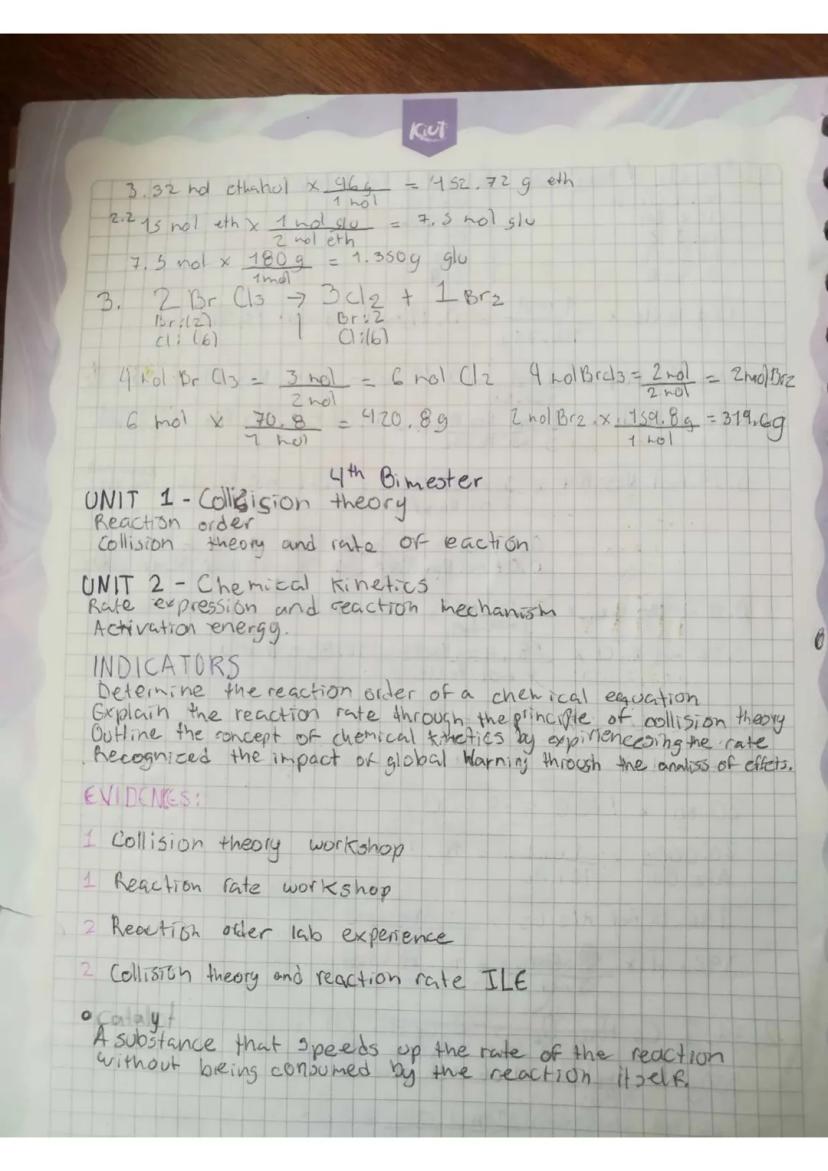 Kiut
3.32 mol ethanol × 46g / 1 mol = 152.72 g eth
2.2 15 mol eth × 1 mol glu / 2 mol eth = 7.5 mol glu
7.5 mol × 180g / 1mol = 1.350g glu
3. 2 Br Cl3 → 3Cl2 + 1 Br2
Br:(2) | Br:2
Cl: (6) Cl:(6)
4 mol Br Cl3 = 3 mol / 2 mol = 6 mol Cl2 4 mol BrCl3 = 2 mol / 2 mol = 2mol Br2
6 mol × 70.8 / 1 mol = 420.8g 2 mol Br2 × 159.8g / 1 mol = 319.6g
4th Bimester
UNIT 1 - Collision theory
Reaction order
Collision theory and rate of eaction
UNIT 2 - Chemical kinetics
Rate expression and reaction mechanism
Activation energy.
INDICATORS
Determine the reaction order of a chemical equation
Explain the reaction rate through the principle of collision theory
Outline the concept of chemical kinetics by expiriencesing the rate
Recogniced the impact of global warning through the analiss of effets.
EVIDENCES:
1 Collision theory workshop
1 Reaction rate workshop
2 Reaction order lab experience
2 Collision theory and reaction rate ILE
• Cataly t
A substance that speeds up the rate of the reaction
without being consumed by the reaction itself.